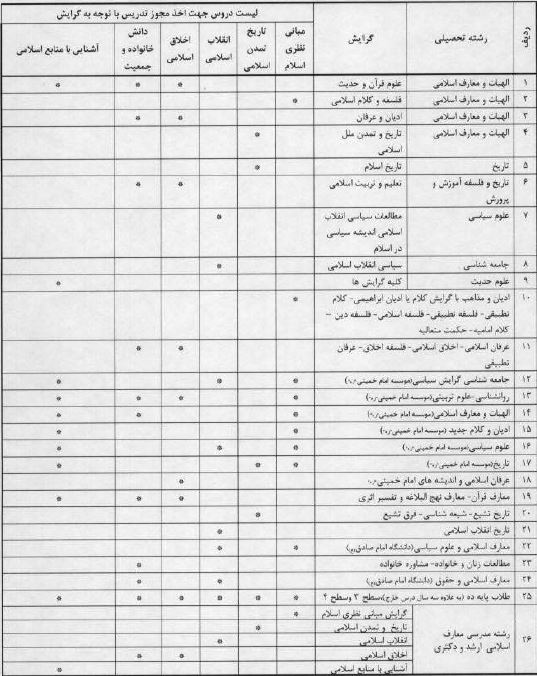 لیست دروس جهت اخذ مجوز تدریس با توجه به گرایش
ردیف رشته تحصیلی گرایش مبانی نظری اسلام تاریخ تمدن اسلامی انقلاب اسلامی اخلاق اسلامی دانش خانواده و جمعیت آشنایی با منابع اسلامی
۱ الهیات و معارف اسلامی علوم قرآن و حدیث * * *
۲ الهیات و معارف اسلامی فلسفه و کلام اسلامی *
۳ الهیات و معارف اسلامی ادیان و عرفان * *
۴ الهیات و معارف اسلامی تاریخ و تمدن ملل *
اسلامی
۵ تاریخ تاریخ اسلام *
۶ تاریخ و فلسفه آموزش و تعلیم و تربیت اسلامی * *
پرورش
۷ علوم سیاسی مطالعات سیاسی انقلاب *
اسلامی اندیشه سیاسی
در اسلام
۸ جامعه شناسی سیاسی انقلاب اسلامی *
۹ علوم حدیث کلیه گرایش ها *
۱۰ ادیان و مذاهب با گرایش کلام یا ادیان ابراهیمی- کلام *
تطبیقی- فلسفه تطبیقی- فلسفه اسلامی- فلسفه دین –
کلام امامیه- حکمت متعالیه
۱۱ عرفان اسلامی- اخلاق اسلامی- فلسفه اخلاق- عرفان * *
تطبیقی
۱۲ جامعه شناسی گرایش سیاسی(موسسه امام خمینی) * * *
۱۳ روانشناسی-علوم تربیتی(موسسه امام خمینی) * * * *
۱۴ الهیات و معارف اسلامی(موسسه امام خمینی) * * *
۱۵ ادیان و کلام جدید (موسسه امام خمینی) * *
۱۶ علوم سیاسی(موسسه امام خمینی) * * *
۱۷ تاریخ(موسسه امام خمینی) * * *
۱۸ عرفان اسلامی و اندیشه های امام خمینی *
۱۹ معارف قرآن- معارف نهج البلاغه و تفسیر اثری * * *
۲۰ تاریخ تشیع- شیعه شناسی- فرق تشیع *
۲۱ تاریخ انقلاب اسلامی *
۲۲ معارف اسلامی و علوم سیاسی(دانشگاه امام صادق) * *
۲۳ مطالعات زنان و خانواده- مشاوره خانواده *
۲۴ معارف اسلامی و حقوق (دانشگاه امام صادق) * *
۲۵ طلاب پایه ده (به علاوه سه سال درس خارج)،سطح ۳ وسطح ۴ * * * * * *
۲۶ رشته مدرسی معارف اسلامی ارشد و دکتری
گرایش مبانی نظری اسلام *
تاریخ و تمدن اسلامی *
انقلاب اسلامی *
اخلاق اسلامی * *
آشنایی با منابع اسلامی *